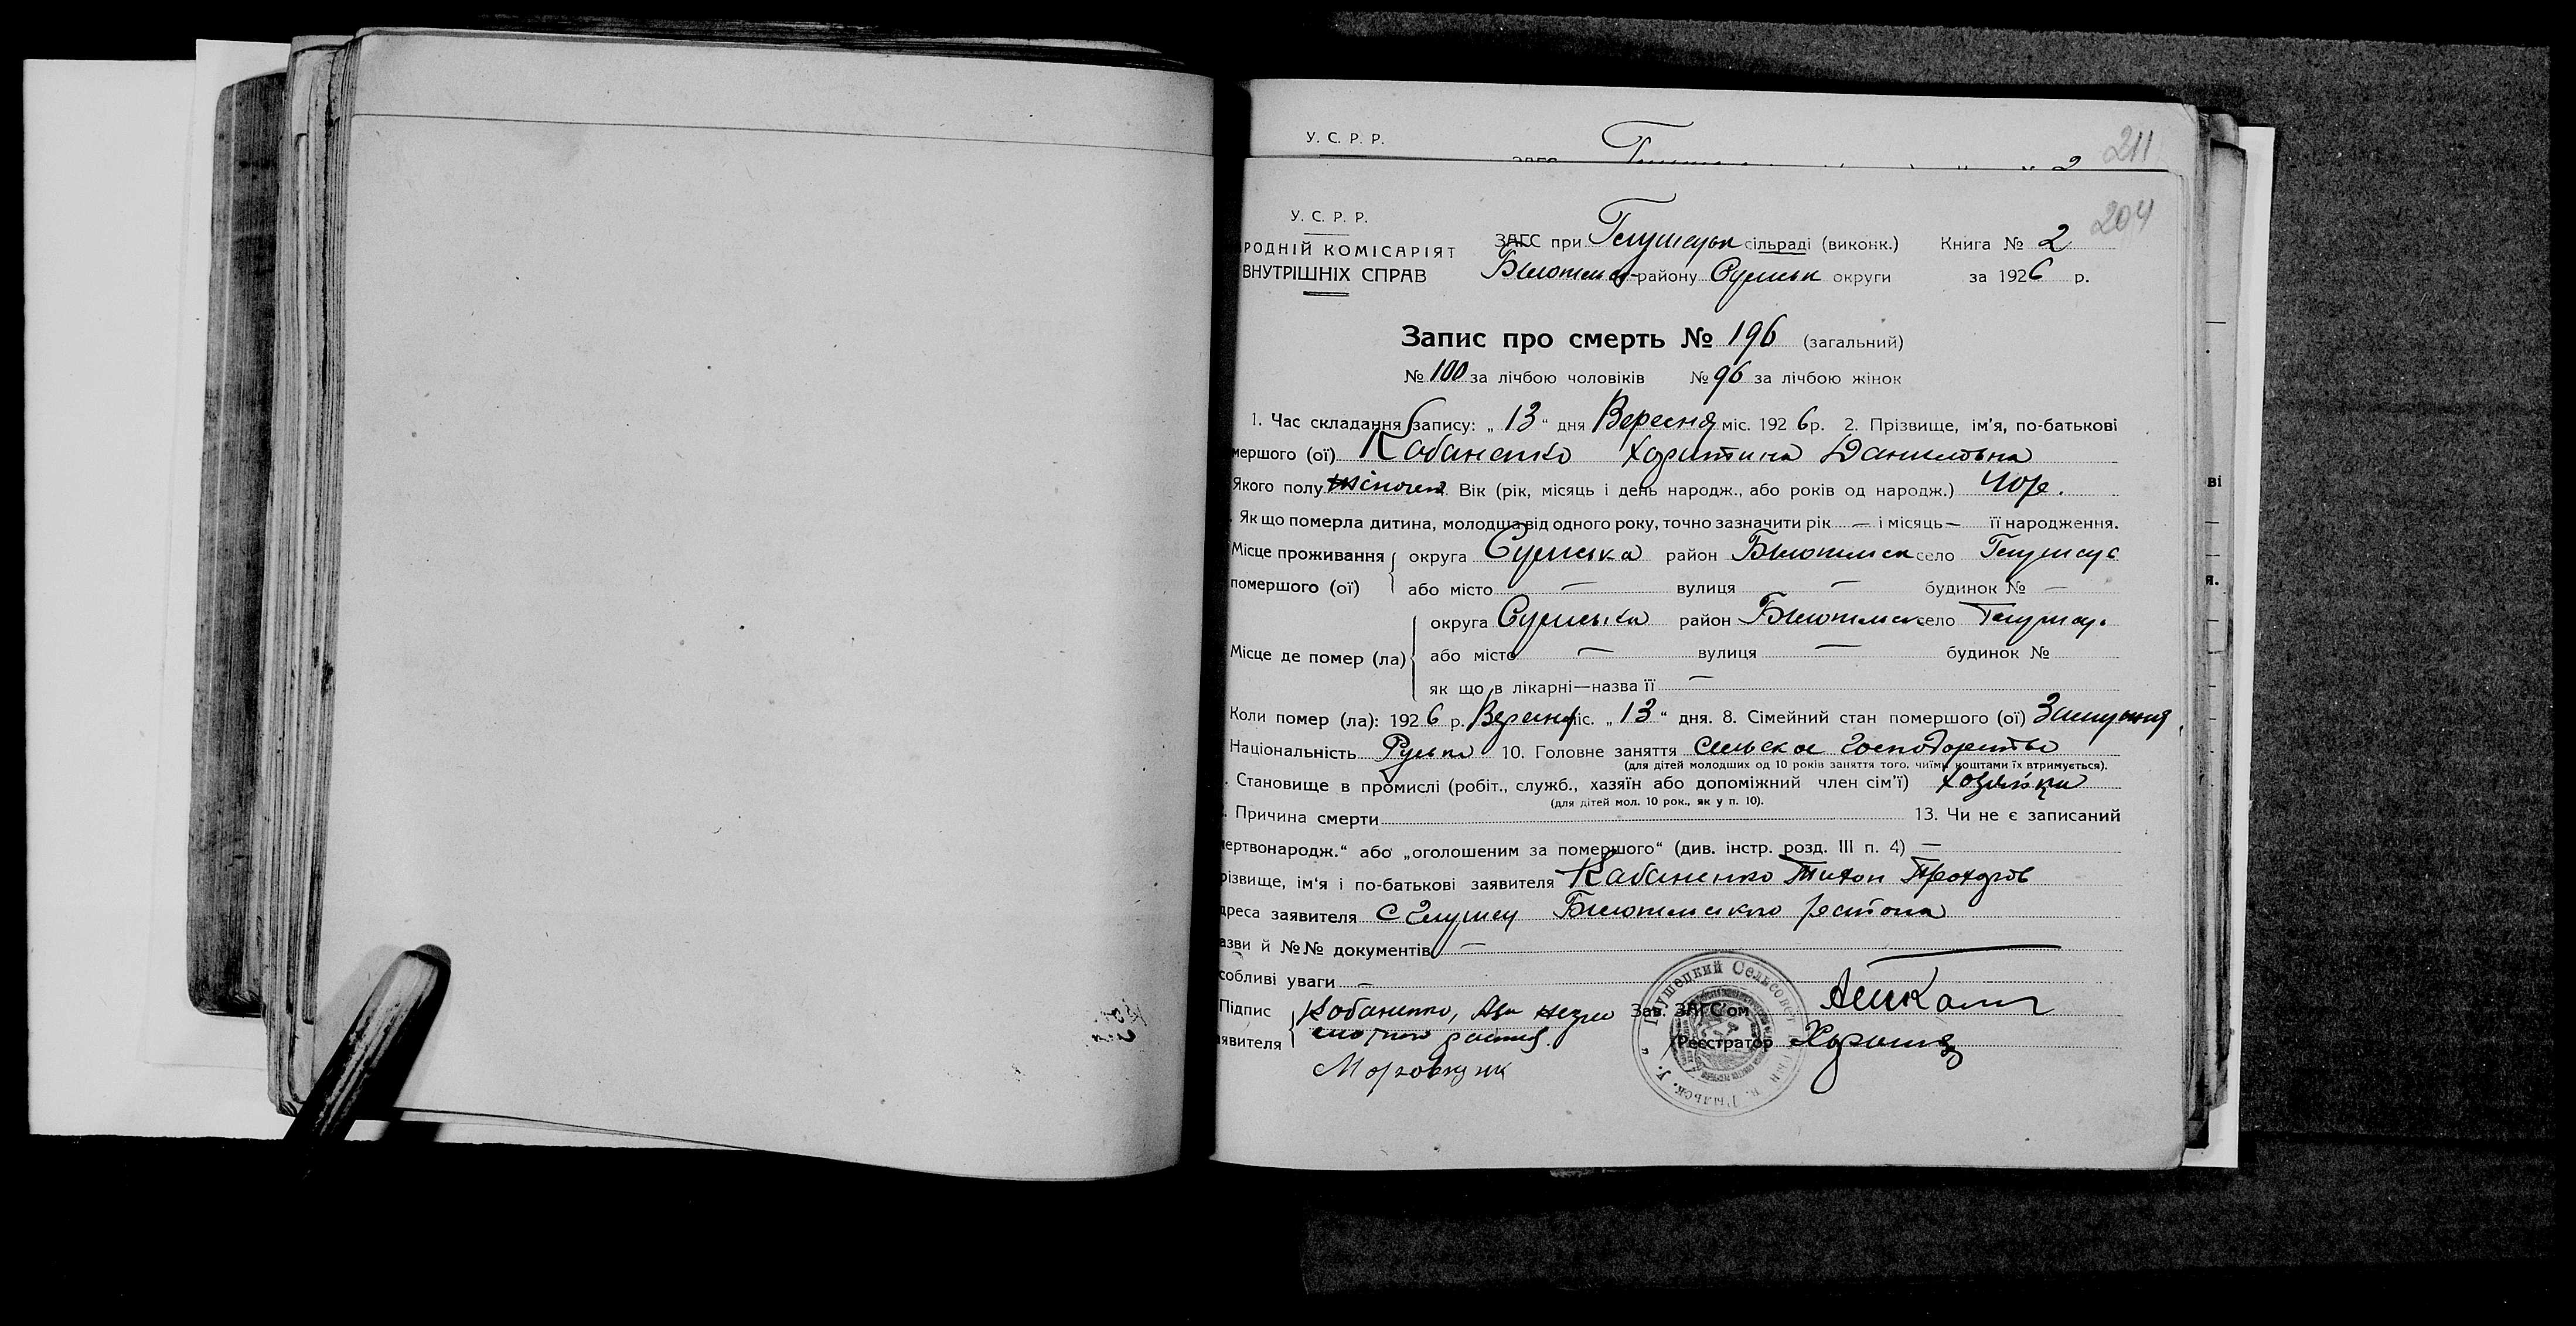 У. С. Р. Р.
211
2
У. С. Р. Р.
204
РОДНІЙ КОМІСАРІЯТ
ВНУТРІШНІХ СПРАВ
ЗАГС при Глушецьк сільраді (виконк.) Книга № 2
району Сумськ округи за 1926 р.
Запис про смерть № 196 (загальний)
№ 100 за лічбою чоловіків № 96 за лічбою жінок
1. Час складання запису: „ 13 “ дня Вересня міс. 1926 р. 2. Прізвище, ім'я, по-батькові
мершого (ої) Кабаненко Харитина Даниловна
Якого полу Вік (рік, місяць і день народж., або років од народж.) 40 р.
Як що померла дитина, молодша від одного року, точно зазначити рік — і місяць — її народження.
Місце проживання округа Сумська район село
помершого (ої) або місто — вулиця — будинок № —
округа Сумська район село
Місце де помер (ла) або місто — вулиця — будинок №
як що в лікарні—назва її —
Коли помер (ла): 1926 р. Вересня міс. „ 13 “ дня. 8. Сімейний стан помершого (ої) Замужня
Національність Руська 10. Головне заняття сельское господарство
(для дітей молодших од 10 років заняття того, чиїми коштами їх втримується).
. Становище в промислі (робіт., служб., хазяїн або допоміжний член сім'ї) хозяйка
(для дітей мол. 10 рок., як у п. 10).
. Причина смерти 13. Чи не є записаний
ертвонародж.“ або „оголошеним за помершого“ (див. інстр. розд. III п. 4) —
різвище, ім'я і по-батькові заявителя Кабаненко Тихон Прохоров
дреса заявителя с Глушец района
азви й №№ документів —
собливі уваги —
Підпис Кабаненко, Зав. ЗАГС'ом
явителя Реєстратор
Глушецкий Сельсовет